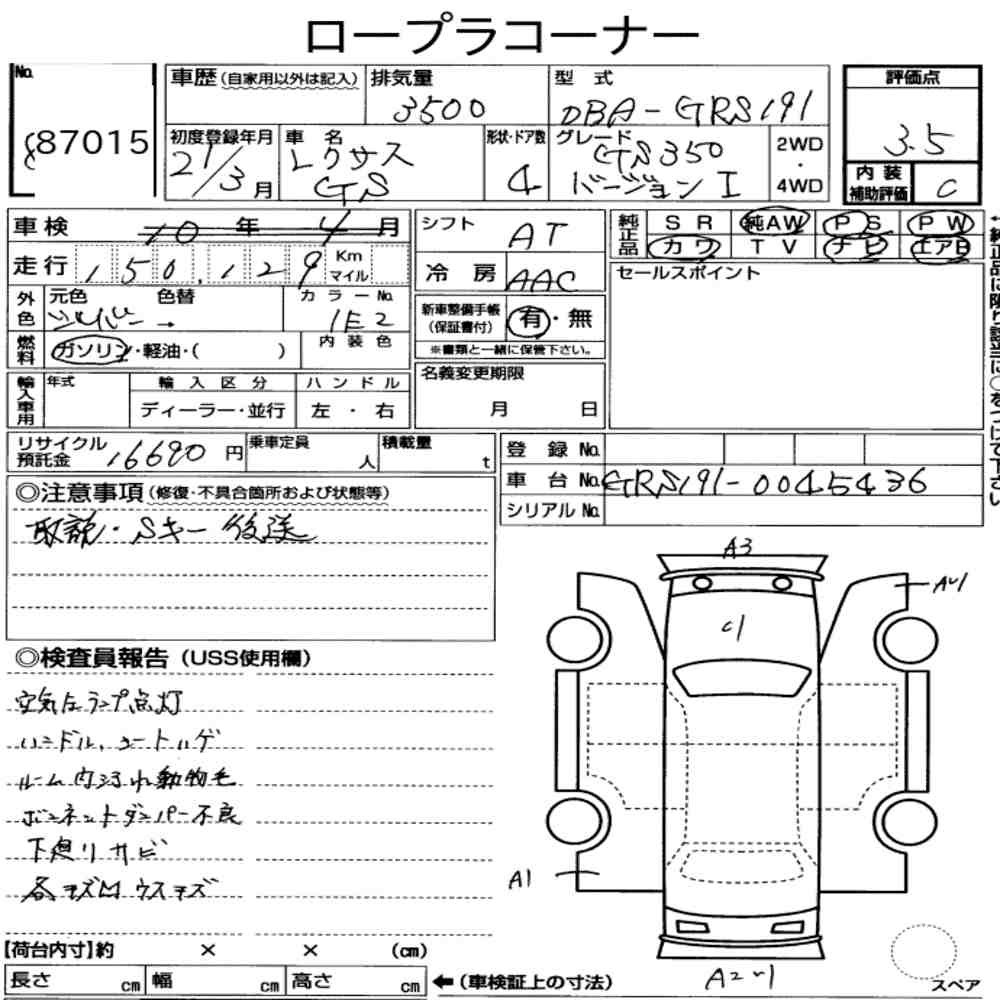 ロープラコーナー
No. 87015
車歴(自家用以外は記入) 排気量 3500 型式 DBA-GRS191
初度登録年月 21/3月 車名 レクサス GS 形状・ドア数 4 グレード GS350 バージョンI 2WD・4WD
評価点 3.5
内装補助評価 C
車検 10年4月
走行 150,129 Km マイル
外色 元色 シルバー 色替 → カラーNo. 1E2
燃料 ガソリン・軽油・( ) 内装色
輸入車用 年式 輸入区分 ディーラー・並行 ハンドル 左・右
シフト AT
冷房 AAC
新車整備手帳(保証書付) 有・無
※書類と一緒に保管下さい。
名義変更期限 月 日
純正品 SR 純AW PS PW
カワ TV ナビ エアB
セールスポイント
←純正品に限り該当に○をつけて下さい
リサイクル預託金 16690円 乗車定員 人 積載量 t
登録No.
車台No. GRS191-0045436
シリアルNo.
◎注意事項(修復・不具合箇所および状態等)
取説・Sキー後送
◎検査員報告(USS使用欄)
空気圧ランプ点灯
ハンドル、シートハゲ
ルーム内汚れ動物毛
ボンネットダンパー不良
下廻りサビ
各キズ凹ウスキズ
A3
A21
C1
A1
A21
スペア
【荷台内寸】約 × × (cm)
長さ cm 幅 cm 高さ cm ←(車検証上の寸法)